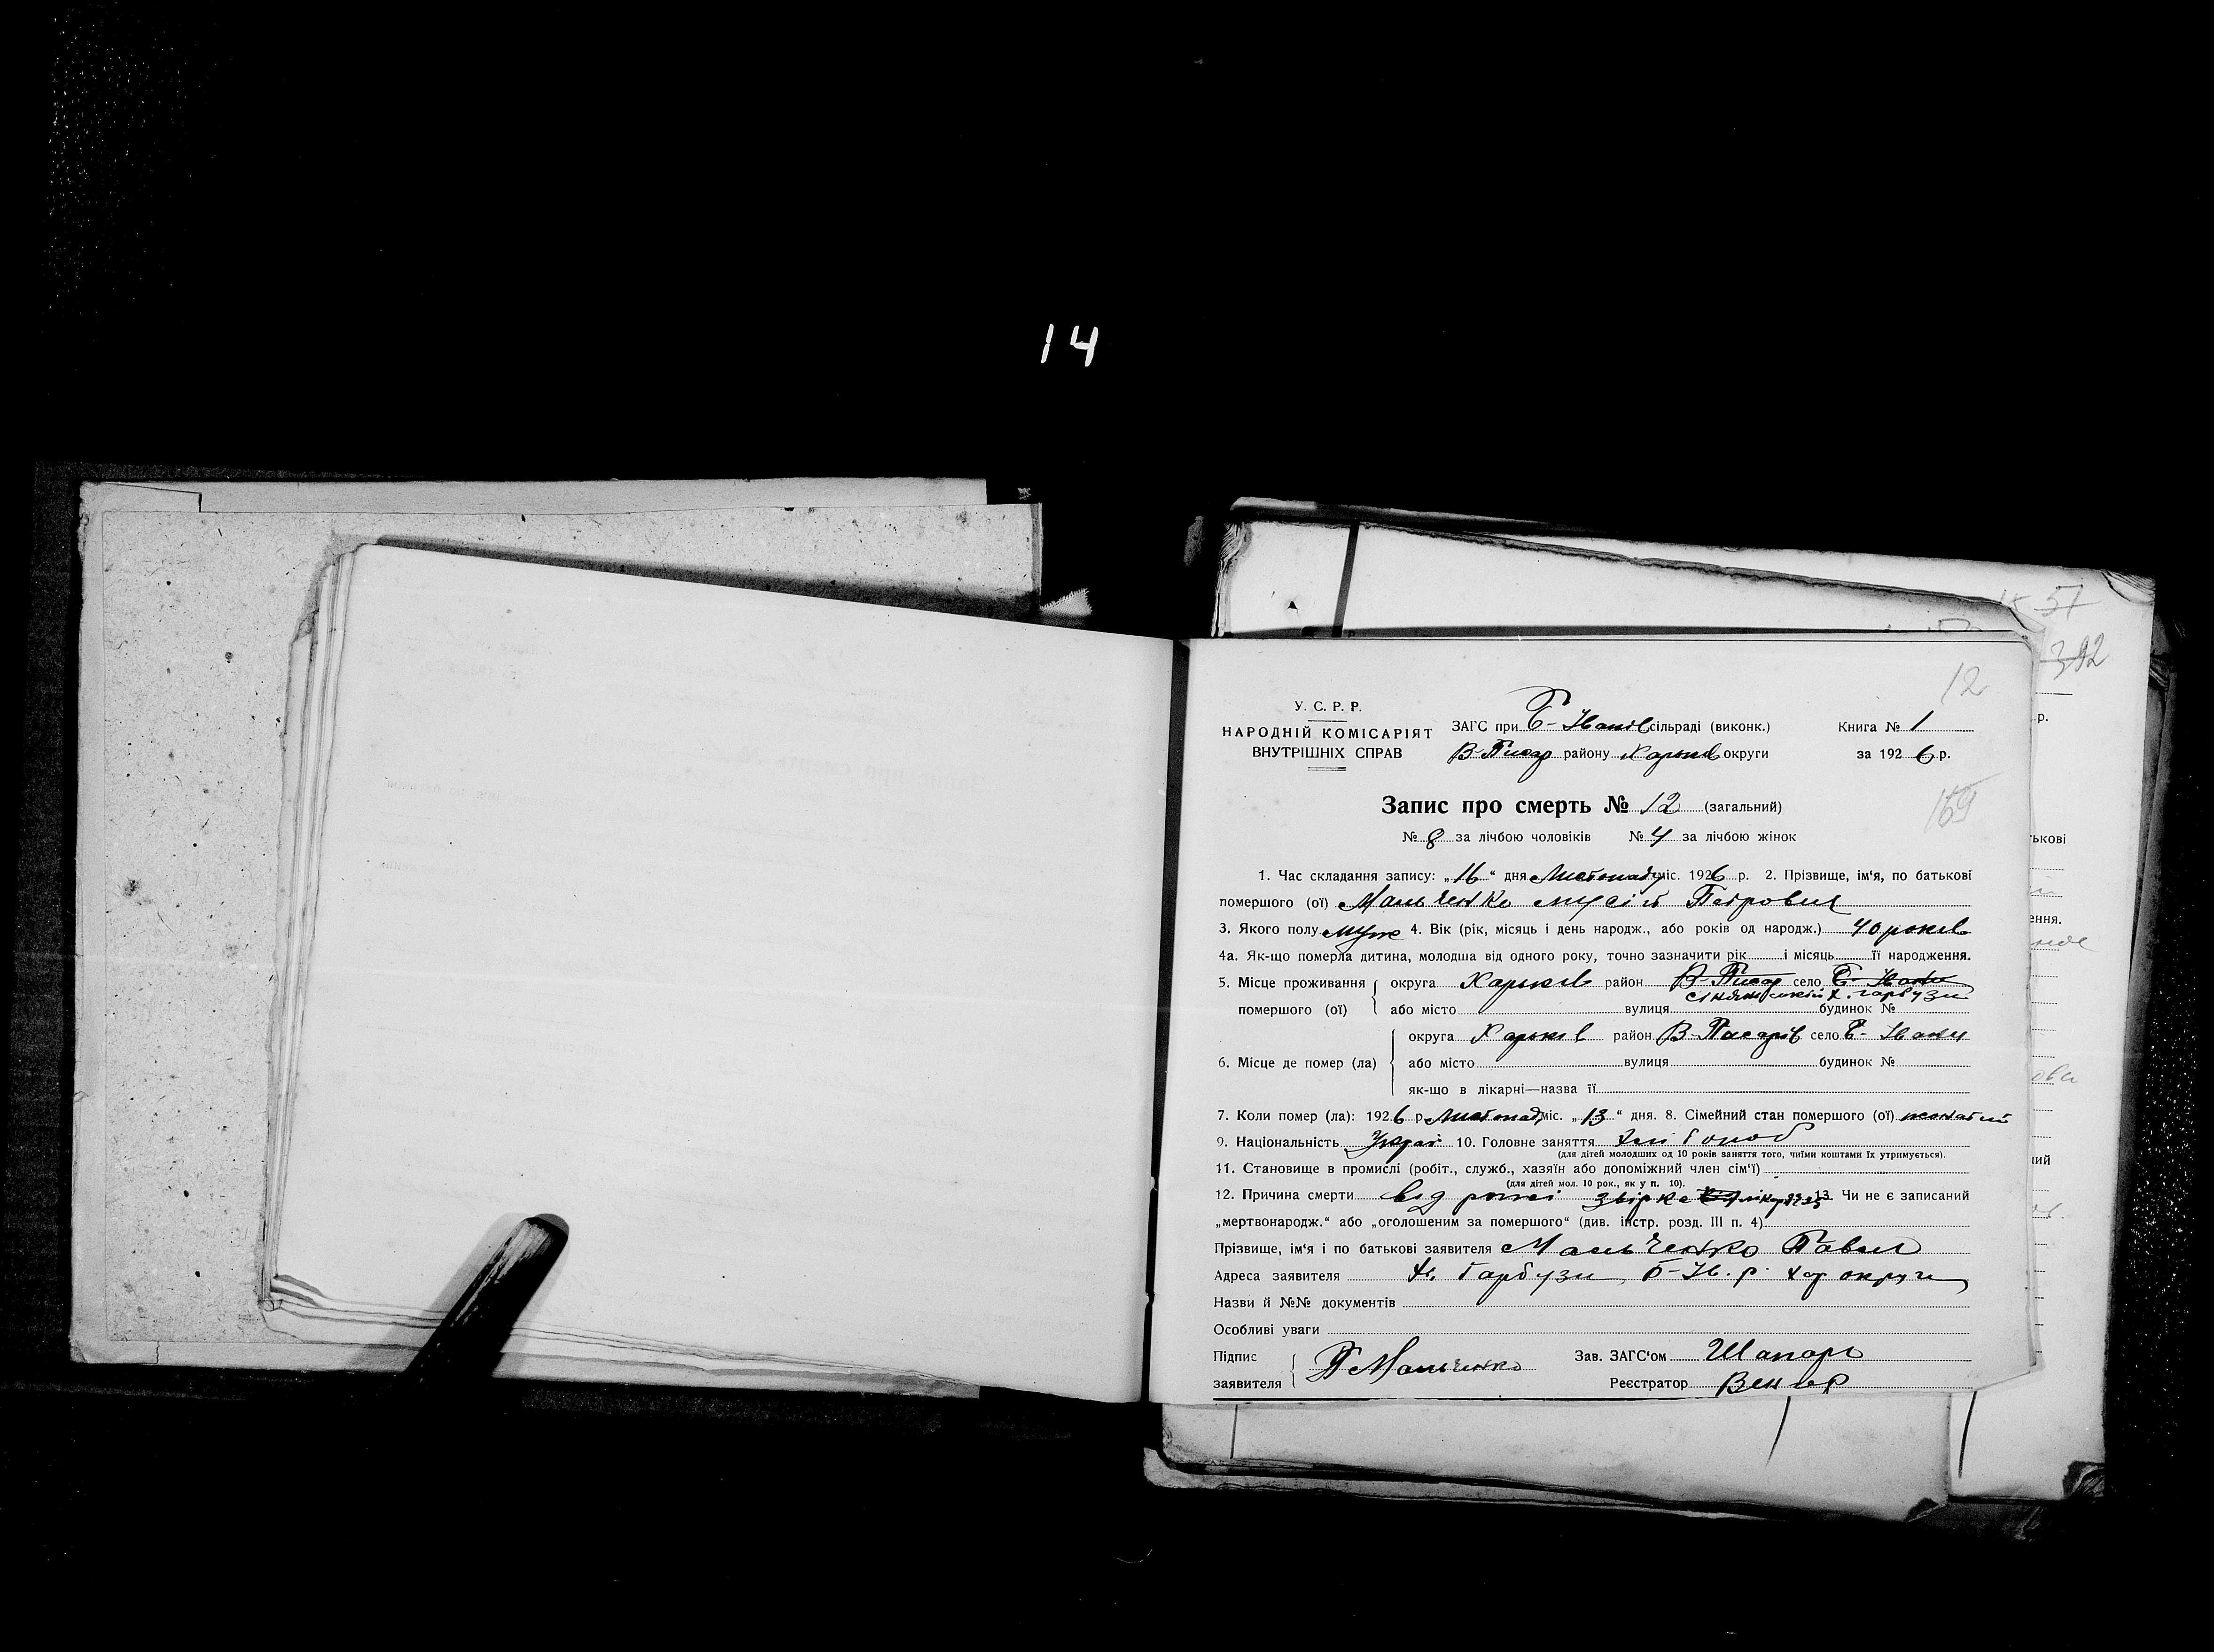 14
57
392
12
У. С. Р. Р.
НАРОДНІЙ КОМІСАРІЯТ
ВНУТРІШНІХ СПРАВ
ЗАГС при Б-Іванів сільраді (виконк.)
В-Писар району Харьків округи
Книга № 1
за 1926 р.
Запис про смерть № 12 (загальний)
169
№ 8 за лічбою чоловіків № 4 за лічбою жінок
1. Час складання запису: „16“ дня Листопаду міс. 1926 р. 2. Прізвище, ім‘я, по батькові
помершого (ої) Мальченко Мусій Петрович
3. Якого полу муж 4. Вік (рік, місяць і день народж., або років од народж.) 40 років
4а. Як-що померла дитина, молодша від одного року, точно зазначити рік і місяць її народження.
5. Місце проживання помершого (ої) округа Харьків район В-Писар село Б-Іван
х. Гарбузи
або місто вулиця будинок №
6. Місце де помер (ла) округа Харьків район В-Писарів село Б-Іван
або місто вулиця будинок №
як-що в лікарні—назва її
7. Коли помер (ла): 1926 р. Листопад міс. „13“ дня. 8. Сімейний стан помершого (ої) жонатий
9. Національність Украї 10. Головне заняття Хлібороб
(для дітей молодших од 10 років заняття того, чиїми коштами їх утримується).
11. Становище в промислі (робіт., служб., хазяїн або допоміжний член сім‘ї)
(для дітей мол. 10 рок., як у п. 10).
12. Причина смерти від рожі 13. Чи не є записаний
„мертвонародж.“ або „оголошеним за помершого“ (див. інстр. розд. III п. 4)
Прізвище, ім‘я і по батькові заявителя Мальченко Павел
Адреса заявителя х. Гарбузи, Б-Ів. р. Хар округи
Назви й №№ документів
Особливі уваги
Підпис заявителя П Мальченко
Зав. ЗАГС‘ом Шапарь
Реєстратор Венгер